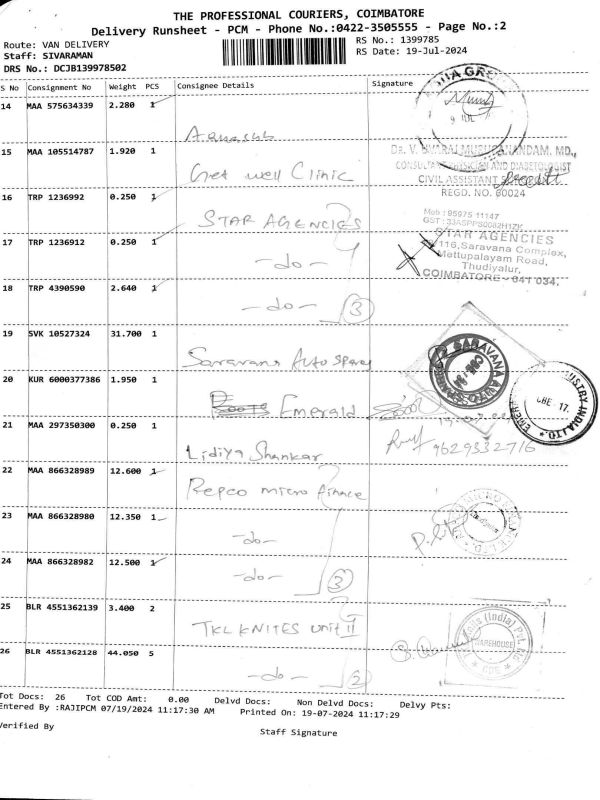 THE PROFESSIONAL COURIERS, COIMBATORE
Delivery Runsheet - PCM - Phone No.:0422-3505555 - Page No.:2
Route: VAN DELIVERY
RS No.: 1399785
Staff: SIVARAMAN
RS Date: 19-Jul-2024
DRS No.: DCJB139978502
S No Consignment No Weight PCS Consignee Details Signature
14 MAA 575634339 2.280 1
15 MAA 105514787 1.920 1 Get well Clinic
CIVIL ASSISTANT
REGD. NO. 60024
16 TRP 1236992 0.250 1 STAR AGENCIES
Mob : 95975 11147
17 TRP 1236912 0.250 1 -do-
STAR AGENCIES
116, Saravana Complex,
Mettupalayam Road,
Thudiyalur,
COIMBATORE - 641 034.
18 TRP 4390590 2.640 1 -do- 3
19 SVK 10527324 31.700 1 Saravana Auto Spares
SARAVANA AUTO SPARES
20 KUR 6000377386 1.950 1 Emerald
CBE - 17.
21 MAA 297350300 0.250 1 Lidiya Shankar 9629332716
22 MAA 866328989 12.600 1 Repco micro finance
23 MAA 866328980 12.350 1 -do-
24 MAA 866328982 12.500 1 -do- 3
25 BLR 4551362139 3.400 2 TKL KNITES unit II
WAREHOUSE
26 BLR 4551362128 44.050 5 -do- 2
Tot Docs: 26 Tot COD Amt: 0.00 Delvd Docs: Non Delvd Docs: Delvy Pts:
Entered By :RAJIPCM 07/19/2024 11:17:30 AM Printed On: 19-07-2024 11:17:29
Verified By
Staff Signature